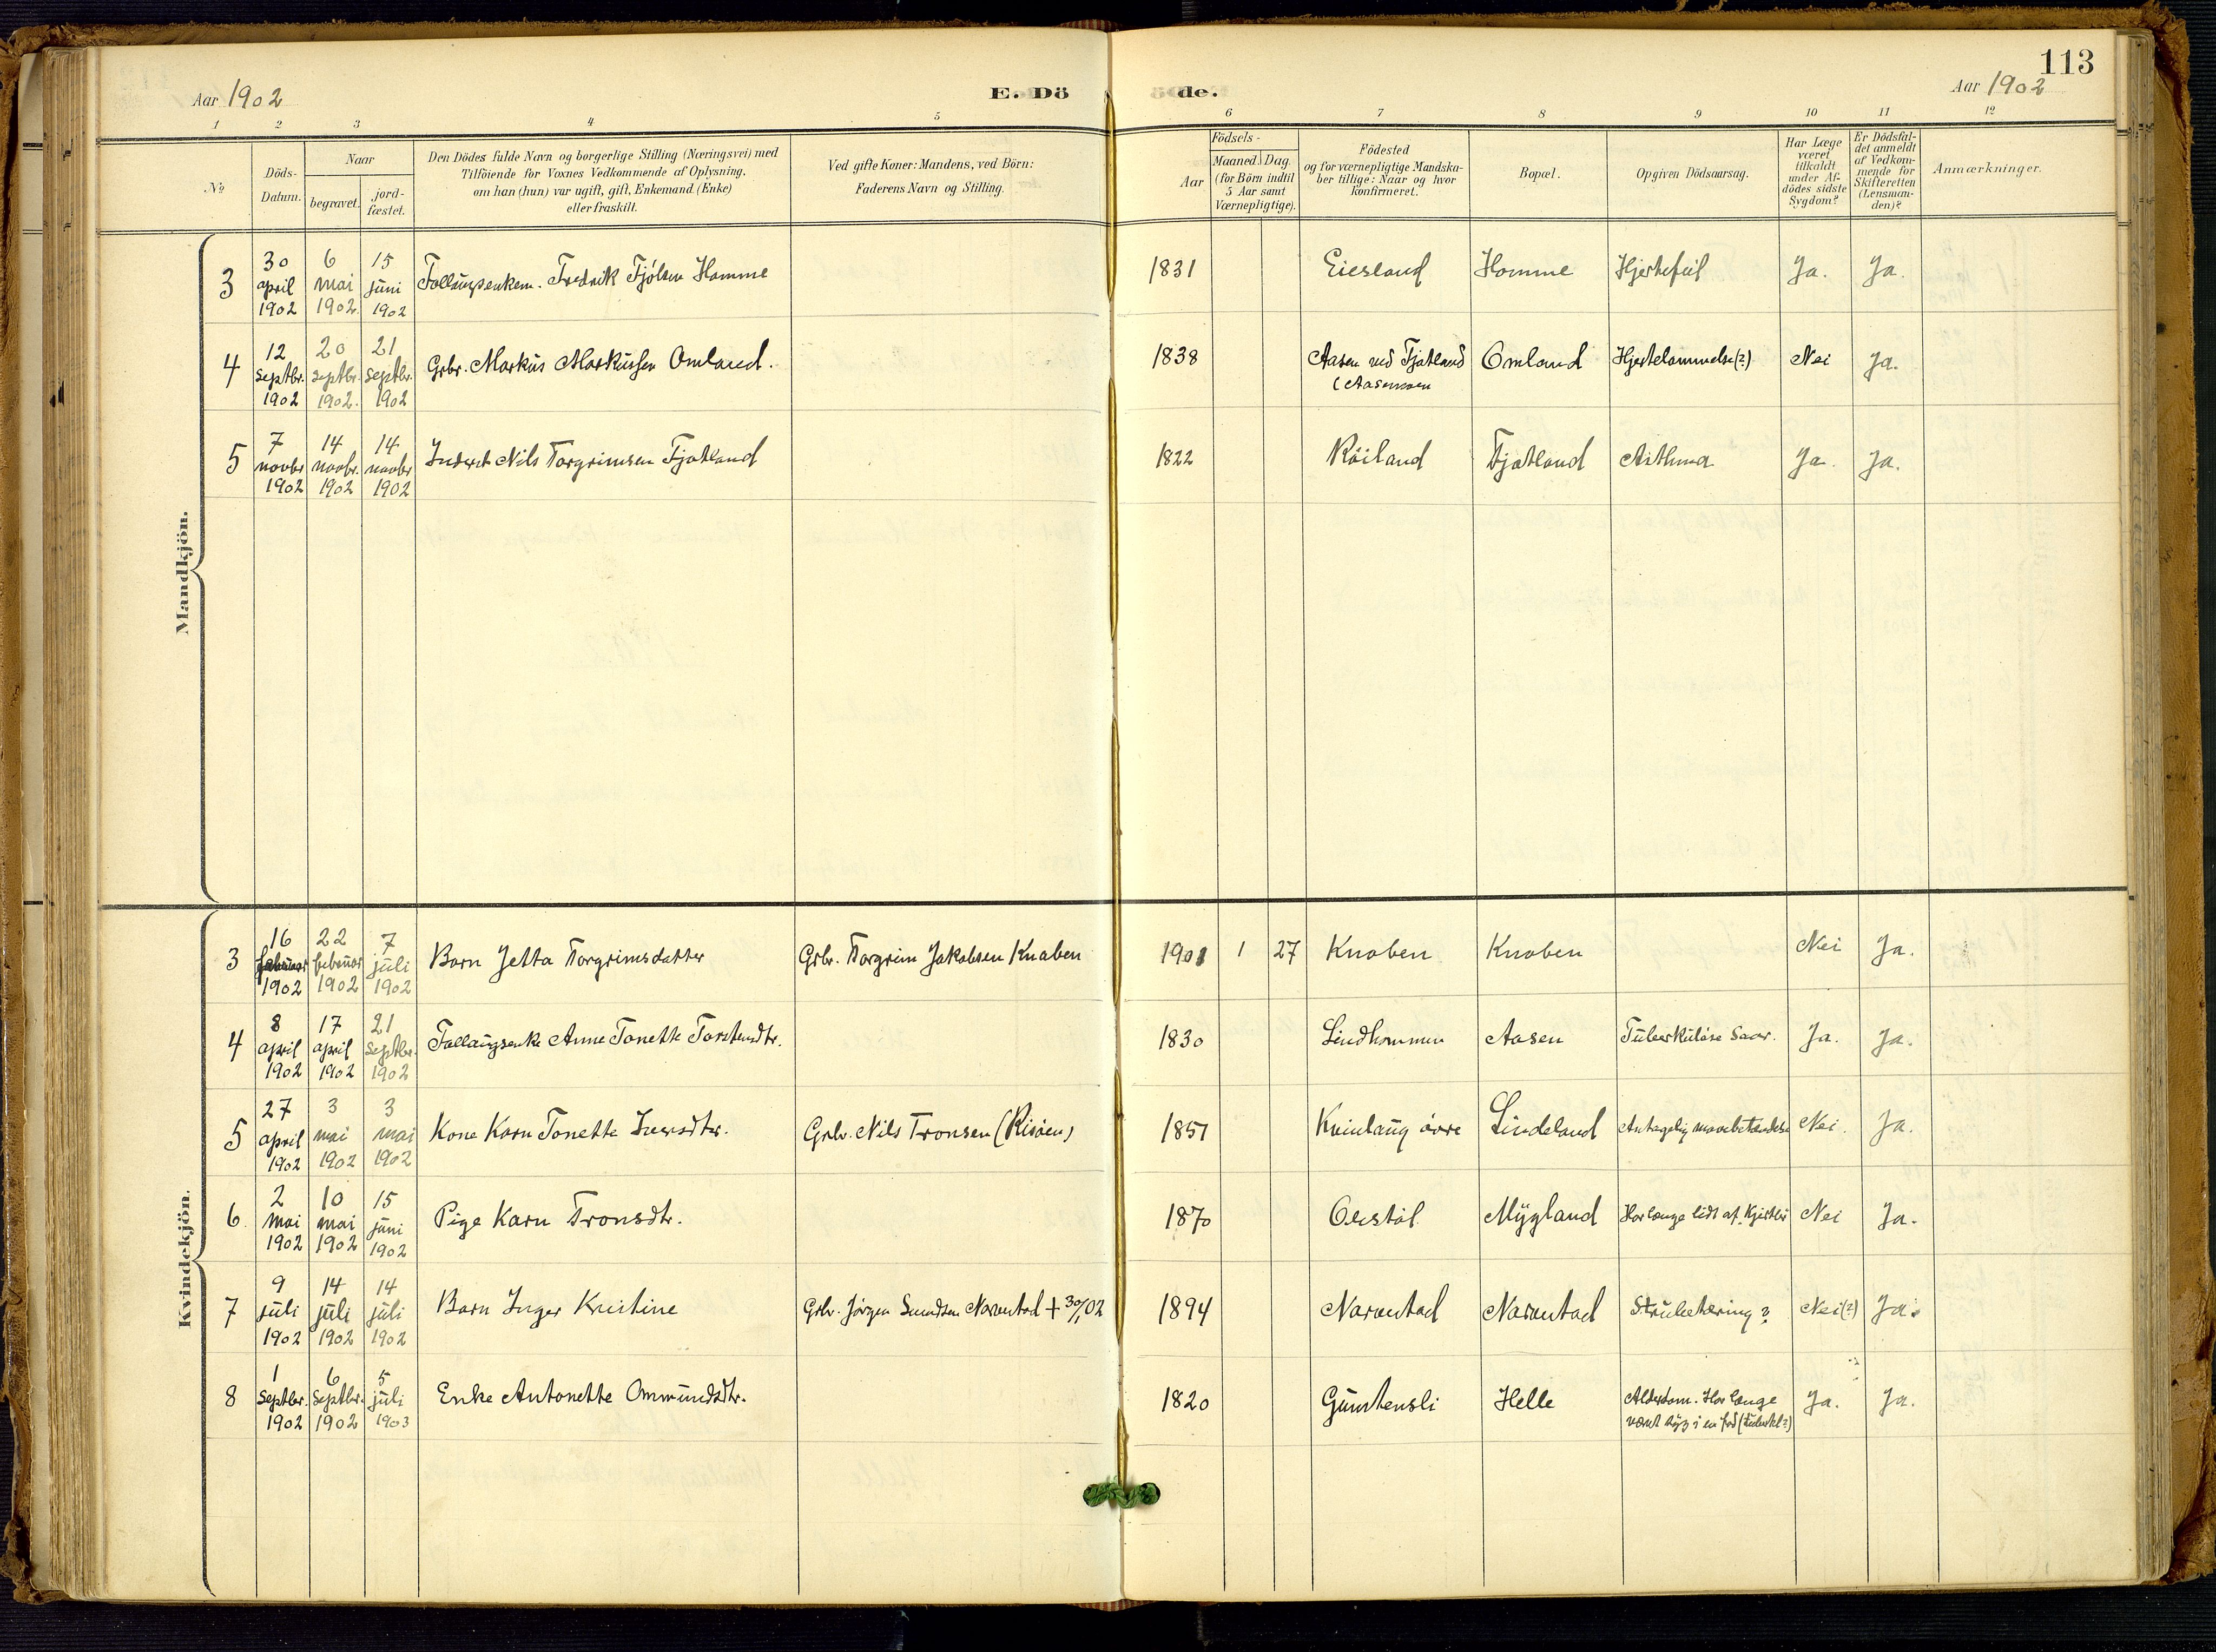 113
Aar 1902
E. Dö
de.
Aar 1902
1 2 3 4 5 6 7 8 9 10 11 12
№
Döds-
Datum.
Naar
begravet.
jord-
fæstet.
Den Dödes fulde Navn og borgerlige Stilling (Næringsvei) med
Tilföiende for Voxnes Vedkommende af Oplysning,
om han (hun) var ugift, gift, Enkemand (Enke)
eller fraskilt.
Ved gifte Koner: Mandens, ved Börn:
Faderens Navn og Stilling.
Födsels-
Aar
Maaned. Dag.
(for Börn indtil
5 Aar samt
Værnepligtige).
Födested
og for værnepligtige Mandska-
ber tillige: Naar og hvor
konfirmeret.
Bopæl.
Opgiven Dödsaarsag.
Har Læge
været
tilkaldt
under Af-
dödes sidste
Sygdom?
Er Dödsfal-
det anmeldt
af Vedkom-
mende for
Skifteretten
(Lensman-
den)?
Anmærkninger.
Mandkjön.
3 30 april 1902 6 mai 1902 15 juni 1902 Follaugsenkem. Fredrik Tjölsen Homme 1831 Eiesland Homme Hjertefeil Ja. Ja.
4 12 septbr. 1902 20 septbr. 1902. 21 septbr. 1902 Grbr. Markus Markussen Omland. 1838 Aasen ved Fjotland Omland Hjertelammelse(?) Nei Ja.
(Aasenmoen
5 7 novbr 1902 14 novbr. 1902 14 novbr 1902 Inderst Nils Torgrimsen Fjotland 1822 Röiland Fjotland Asthma Ja. Ja.
Kvindekjön.
3 16 februar 1902 22 februar 1902 7 juli 1902 Barn Jetta Torgrimsdatter Grbr. Torgrim Jakobsen Knaben 1901 1 27 Knaben Knaben Nei Ja.
4 8 april 1902 17 april 1902 21 septbr. 1902 Follaugsenke Anne Tonette Torstensdtr. 1830 Lindhommen Aasen Tuberkuløse Saar. Ja. Ja.
5 27 april 1902 3 mai 1902 3 mai 1902 Kone Karn Tonette Iversdtr. Grbr. Nils Tronsen (Risöen) 1857 Kvinlaug övre Lindeland Antagelig mavebetændelse Nei. Ja.
6. 2 mai 1902 10 mai 1902 15 juni 1902 Pige Karn Tronsdtr. 1870 Oksstöl Mygland Har længe lidt af Nei Ja.
7 9 juli 1902 14 juli 1902 14 juli 1902 Barn Inger Kristine Grbr. Jörgen Narvestad + 30/1 02 1894 Narvestad Narvestad Strubetæring? Nei(?) Ja.
8 1 septbr. 1902 6 septbr. 1902 5 juli 1903 Enke Antonette Ommundsdtr. 1820 Gunstensli Helle Alderdom. Har længe Ja. Ja.
været syg i en fod (tuberkl?)